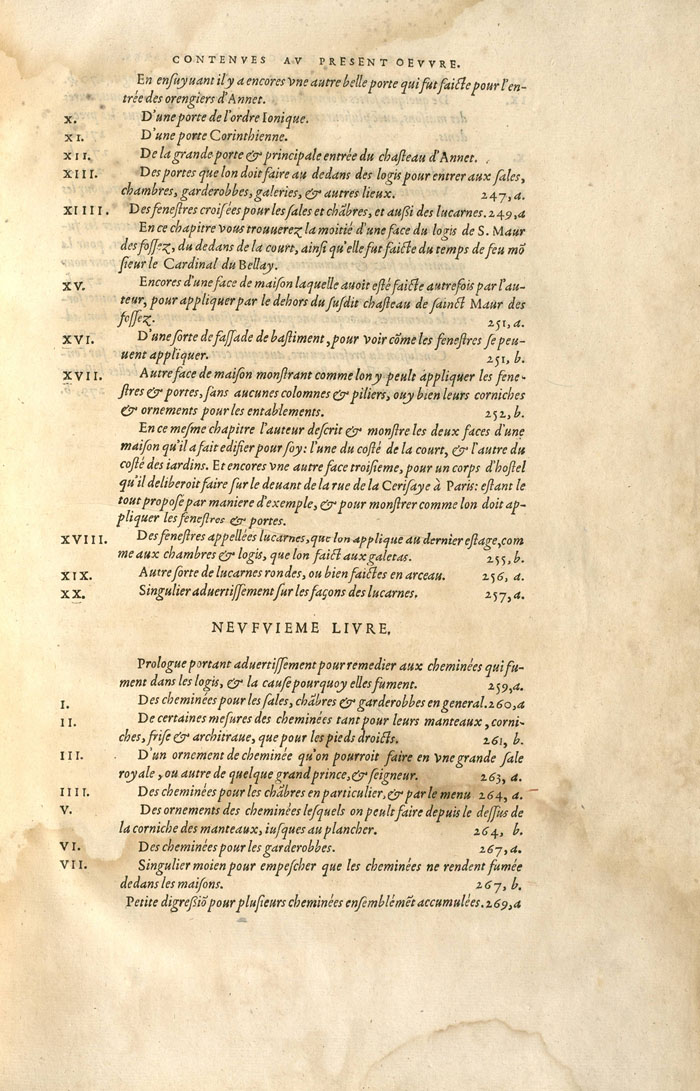 CONTENVES AV PRESENT OEVVRE.
En ensuyuant il y a encores vne autre belle porte qui fut faicte pour l'en-
trée des orengiers d'Annet.
X. D'vne porte de l'ordre Ionique.
XI. D'vne porte Corinthienne.
XII. De la grande porte & principale entrée du chasteau d'Annet.
XIII. Des portes que lon doit faire au dedans des logis pour entrer aux sales,
chambres, garderobbes, galeries, & autres lieux. 247, a.
XIIII. Des fenestres croisées pour les sales et chãbres, et außi des lucarnes. 249, a
En ce chapitre vous trouuerez la moitié d'une face du logis de S. Maur
des fossez, du dedans de la court, ainsi qu'elle fut faicte du temps de feu mõ
sieur le Cardinal du Bellay.
XV. Encores d'une face de maison laquelle auoit esté faicte autrefois par l'au-
teur, pour appliquer par le dehors du susdit chasteau de sainct Maur des
fossez. 251, a.
XVI. D'vne sorte de fassade de bastiment, pour voir cõme les fenestres se peu-
uent appliquer. 251, b.
XVII. Autre face de maison monstrant comme lon y peult appliquer les fene-
stres & portes, sans aucunes colomnes & piliers, ouy bien leurs corniches
& ornements pour les entablements. 252, b.
En ce mesme chapitre l'auteur descrit & monstre les deux faces d'une
maison qu'il a fait edifier pour soy: l'une du costé de la court, & l'autre du
costé des iardins. Et encores vne autre face troisieme, pour un corps d'hostel
qu'il deliberoit faire sur le deuant de la rue de la Cerisaye à Paris: estant le
tout proposé par maniere d'exemple, & pour monstrer comme lon doit ap-
pliquer les fenestres & portes.
XVIII. Des fenestres appellées lucarnes, que lon applique au dernier estage, com
me aux chambres & logis, que lon faict aux galetas. 255, b.
XIX. Autre sorte de lucarnes rondes, ou bien faictes en arceau. 256, a.
XX. Singulier aduertissement sur les façons des lucarnes. 257, a.
NEVFVIEME LIVRE.
Prologue portant aduertissement pour remedier aux cheminées qui fu-
ment dans les logis, & la cause pourquoy elles fument. 259, a.
I. Des cheminées pour les sales, chãbres & garderobbes en general. 260, a
II. De certaines mesures des cheminées tant pour leurs manteaux, corni-
ches, frise & architraue, que pour les pieds droicts. 261, b.
III. D'un ornement de cheminée qu'on pourroit faire en vne grande sale
royale, ou autre de quelque grand prince, & seigneur. 263, a.
IIII. Des cheminées pour les chãbres en particulier, & par le menu 264, a.
V. Des ornements des cheminées lesquels on peult faire depuis le dessus de
la corniche des manteaux, iusques au plancher. 264, b.
VI. Des cheminées pour les garderobbes. 267, a.
VII. Singulier moien pour empescher que les cheminées ne rendent fumée
dedans les maisons. 267, b.
Petite digressiõ pour plusieurs cheminées ensemblémẽt accumulées. 269, a